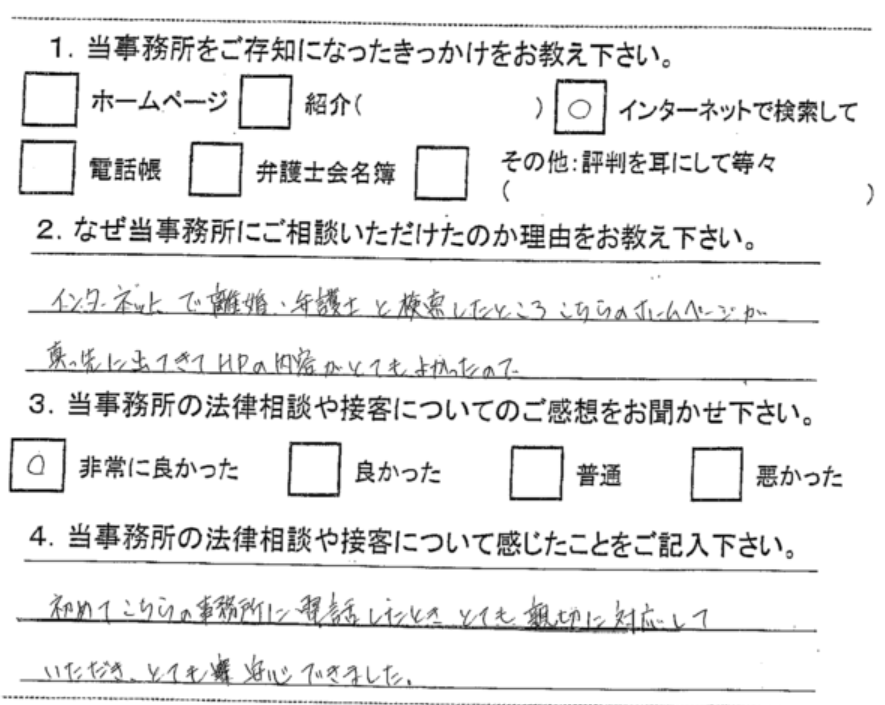 1. 当事務所をご存知になったきっかけをお教え下さい。
ホームページ 紹介( ) ○ インターネットで検索して
電話帳 弁護士会名簿 その他:評判を耳にして等々
( )
2. なぜ当事務所にご相談いただけたのか理由をお教え下さい。
インターネットで離婚・弁護士と検索したところこちらのホームページが
真っ先に出てきてHPの内容がとてもよかったので
3. 当事務所の法律相談や接客についてのご感想をお聞かせ下さい。
○ 非常に良かった 良かった 普通 悪かった
4. 当事務所の法律相談や接客について感じたことをご記入下さい。
初めてこちらの事務所に電話したときとても親切に対応して
いただき、とても安心できました。